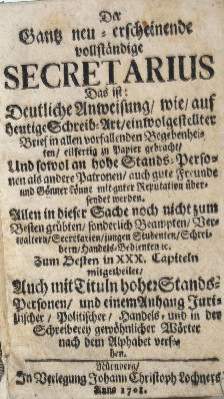 Der
Gantz neu-erscheinende
vollständige
SECRETARIUS
Das ist:
Deutliche Anweisung/ wie/ auf
heutige Schreib-Art/ ein wolgestellter
Brief in allen vorfallenden Begebenhei-
ten/ eilfertig in Papier gebracht/
Und sowol an hohe Stands-Perso-
nen als andere Patronen/ auch gute Freunde
und Gönner könne mit guter Reputation über-
sendet werden.
Allen in dieser Sache noch nicht zum
Besten geübten/ sonderlich Beampten/ Ver-
waltern/ Secretarien/ jungen Studenten/ Schrei-
bern/ Handels-Bedienten ec.
Zum Besten in XXX. Capiteln
mitgetheilet/
Auch mit Tituln hoher Stands-
Personen/ und einem Anhang Juri-
stischer/ Politischer/ Handels- und in der
Schreiberey gewöhnlicher Wörter
nach dem Alphabet verse-
hen.
Nürnberg/
In Verlegung Johann Christoph Lochners
Anno 1701.